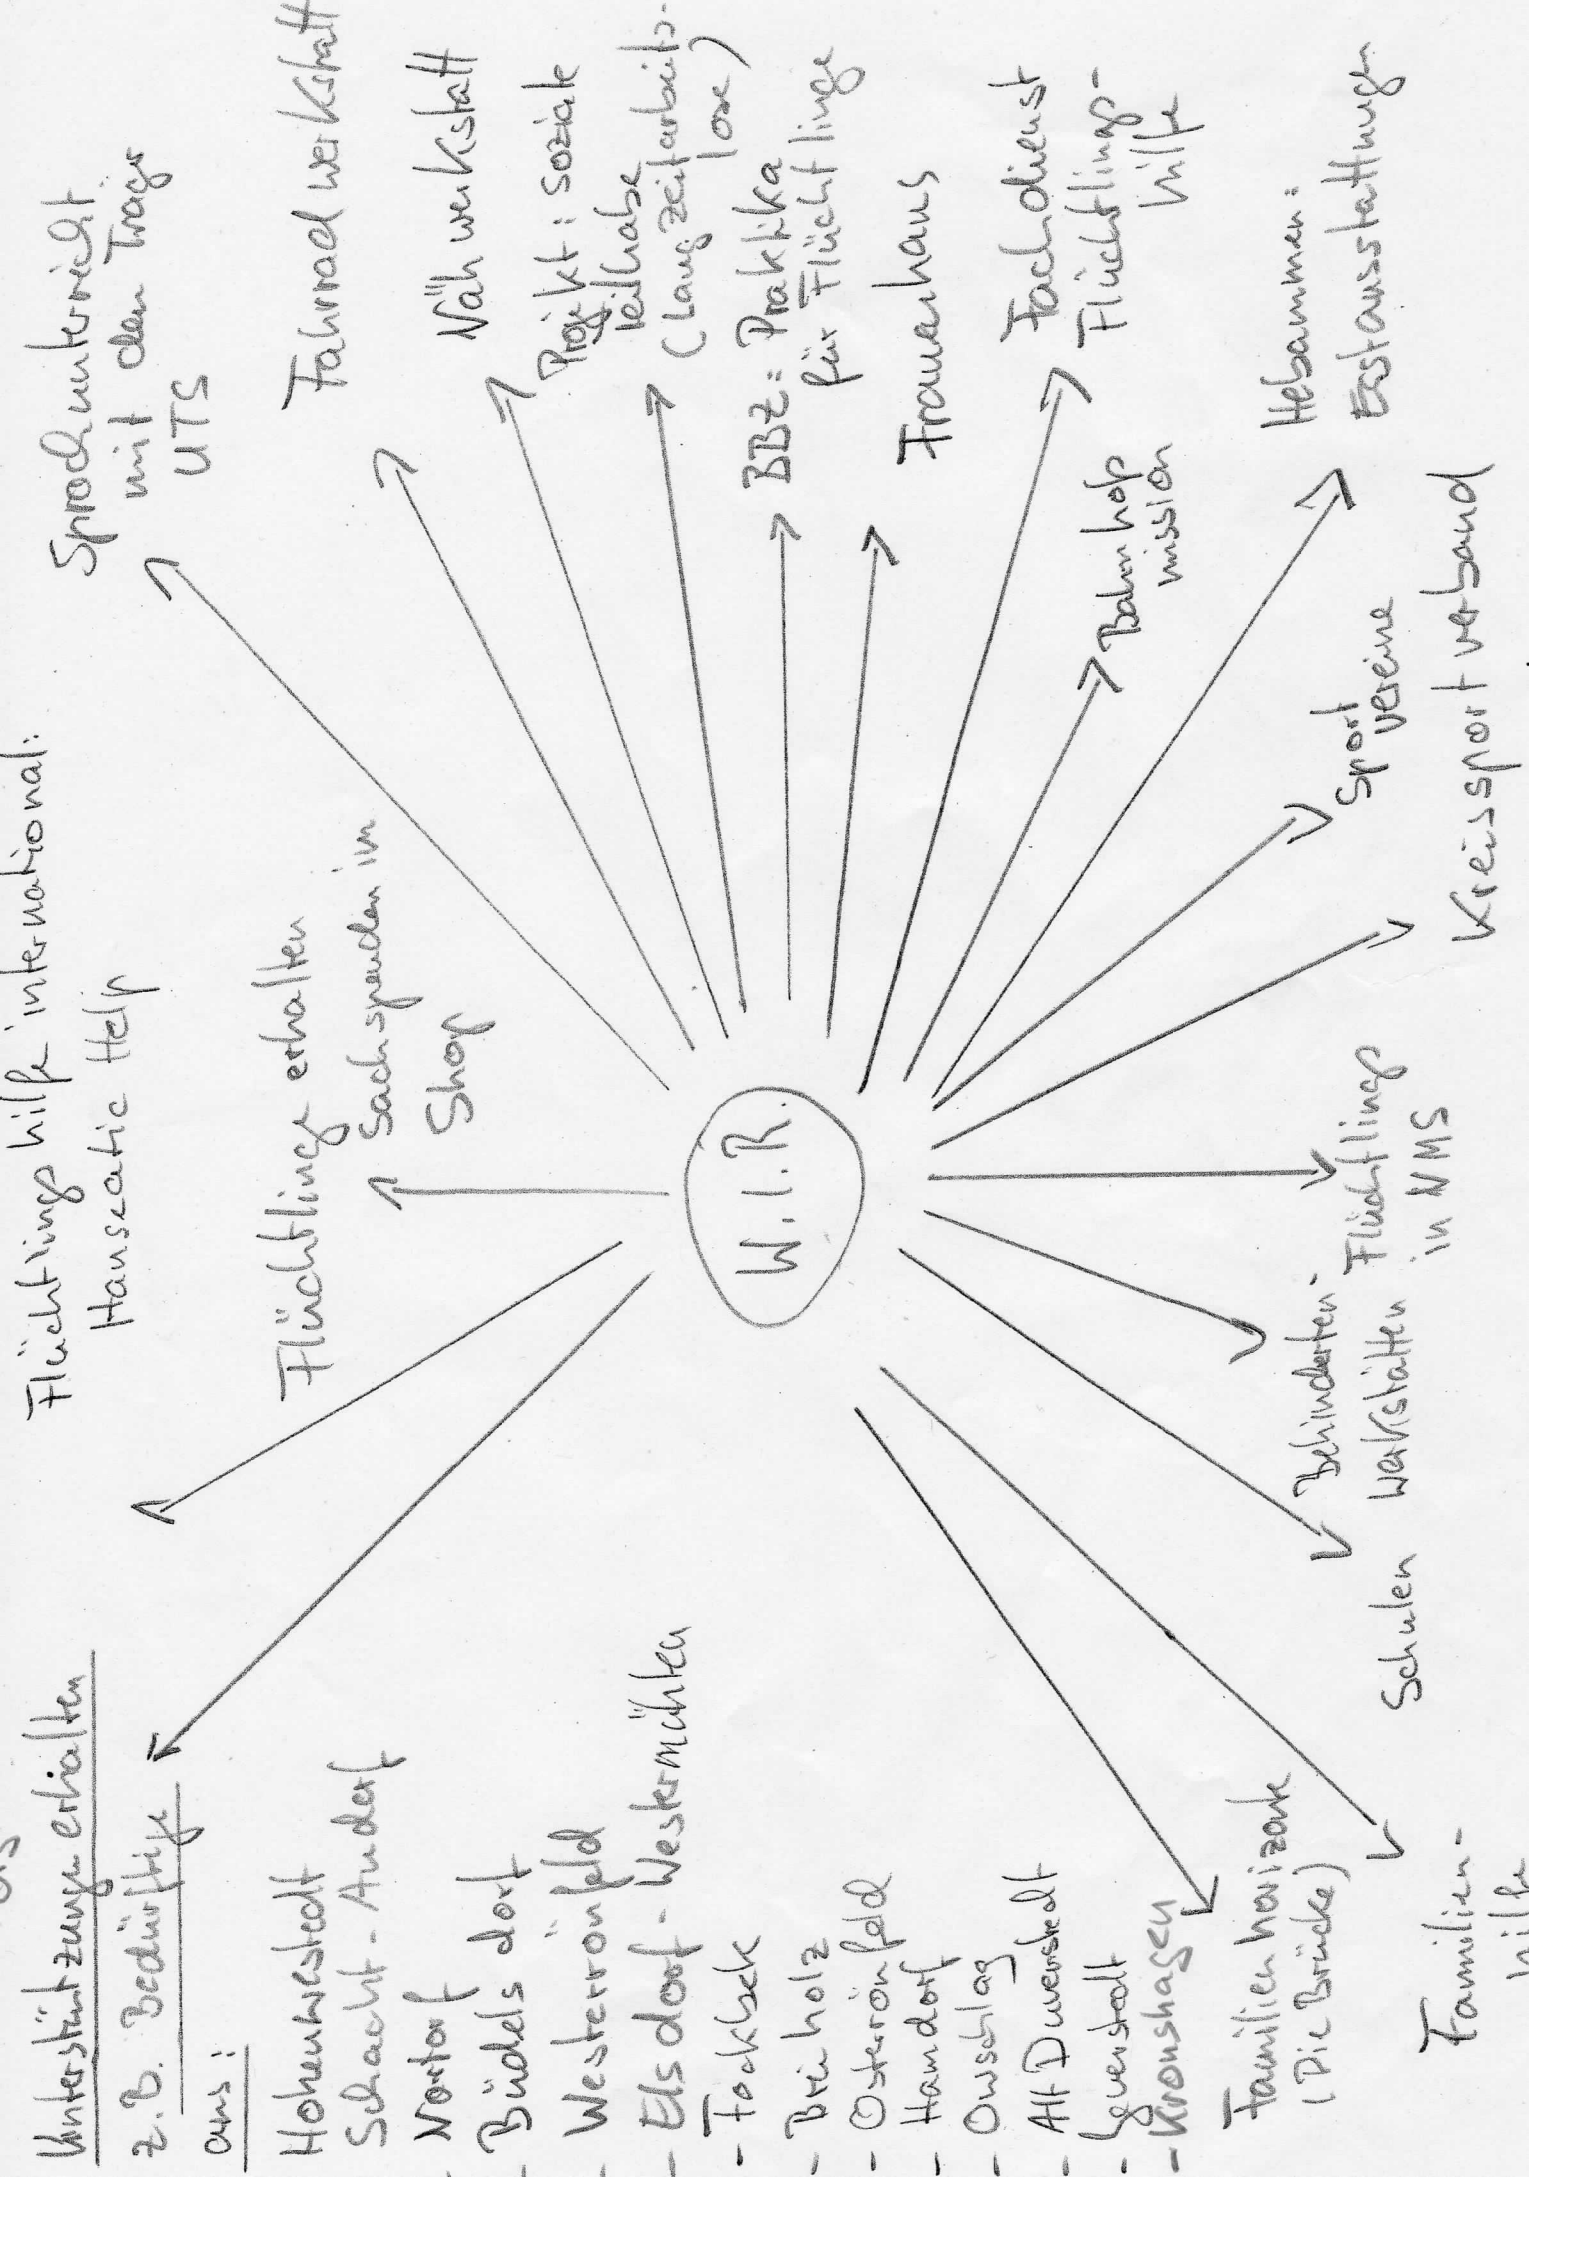 Unterstützung erhalten
z.B. Bedürftige
aus:
Hohenwestedt
Schacht-Audorf
Nortorf
- Büdelsdorf
- Westerrönfeld
- Elsdorf-Westermühlen
- Fockbek
- Breiholz
- Osterrönfeld
- Hamdorf
- Owschlag
- Alt Duvenstedt
- Jevenstedt
- Kronshagen
Familienhorizonte
(Die Brücke)
Familien-
hilfe
Flüchtlingshilfe international:
Hanseatic Help
Flüchtlinge erhalten
Sachspenden im
Shop
W.I.R.
Sprachunterricht
mit dem Träger
UTS
Fahrradwerkstatt
Nähwerkstatt
Projekt: soziale
Teilhabe
(Langzeitarbeits-
lose)
BBZ = Praktika
für Flüchtlinge
Frauenhaus
Fachdienst
Flüchtlings-
hilfe
Bahnhofs
mission
Hebammen:
Erstausstattungen
Sport
vereine
Kreissportverband
Flüchtlings
in NMS
Behinderten-
werkstätten
Schulen